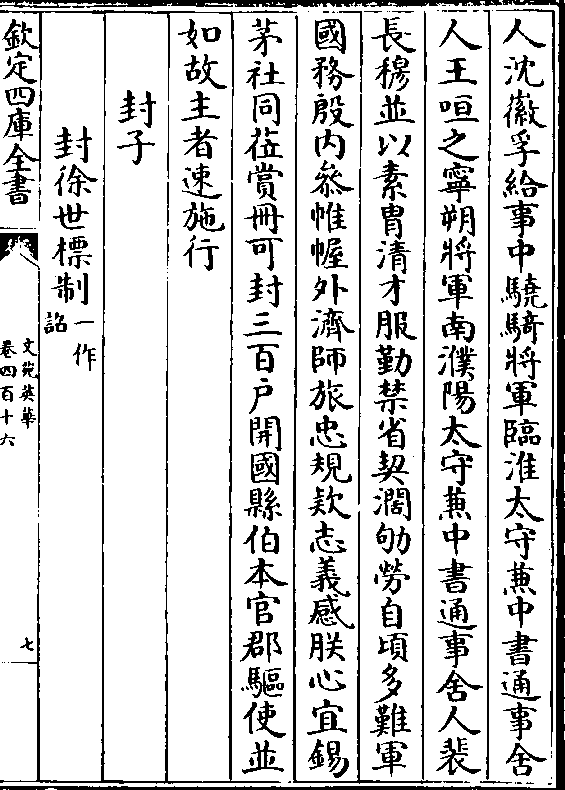 人沈徽孚給事中驍騎將軍臨淮太守兼中書通事舍
人王咺之寧朔將軍南濮陽太守兼中書通事舍人裴
長穆並以素胄清才服勤禁省契濶劬勞自頃多難軍
國務殷内叅帷幄外濟師旅忠規欵志義感朕心宜錫
茅社同莅賞冊可封三百户開國縣伯本官郡驅使並
如故主者速施行
封子
封徐世標制一作詔
欽定四庫全書
文苑英華
卷四百十六
七